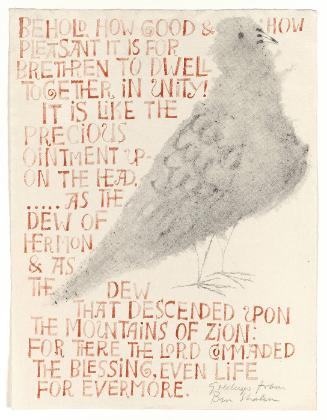 BEHOLD, HOW GOOD & HOW
PLEASANT IT IS FOR
BRETHREN TO DWELL
TOGETHER IN UNITY!
IT IS LIKE THE
PRECIOUS
OINTMENT UP-
ON THE HEAD,
..... AS THE
DEW OF
HERMON
& AS
THE DEW
THAT DESCENDED UPON
THE MOUNTAINS OF ZION:
FOR THERE THE LORD COMMANDED
THE BLESSING, EVEN LIFE
FOR EVERMORE.
Greetings from
Ben Shahn